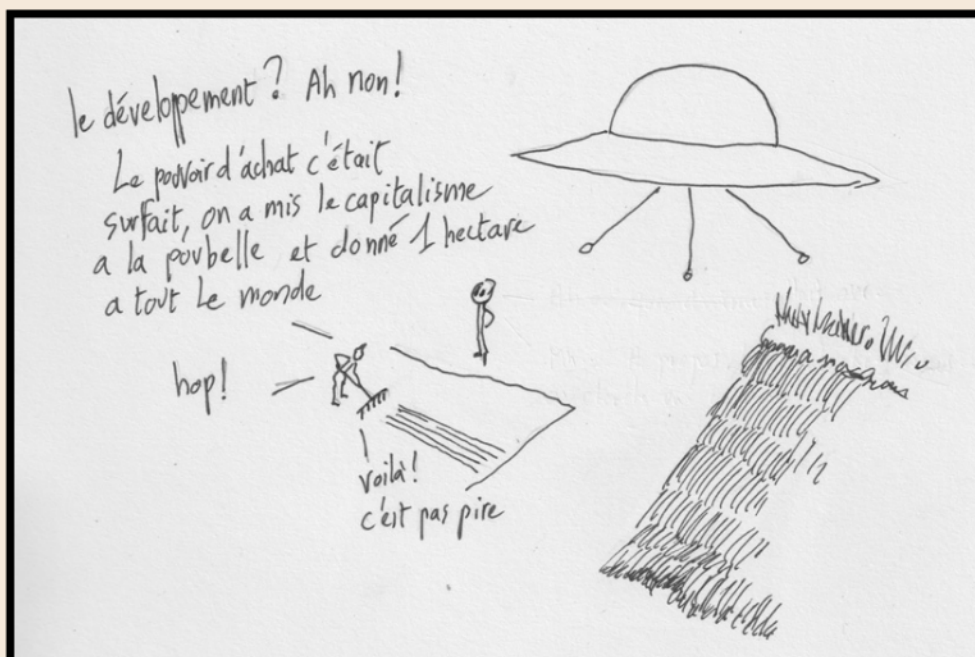 le développement ? Ah non !
Le pouvoir d'achat c'était
surfait, on a mis le capitalisme
a la poubelle et donné 1 hectare
a tout le monde
hop !
voilà !
c'est pas pire